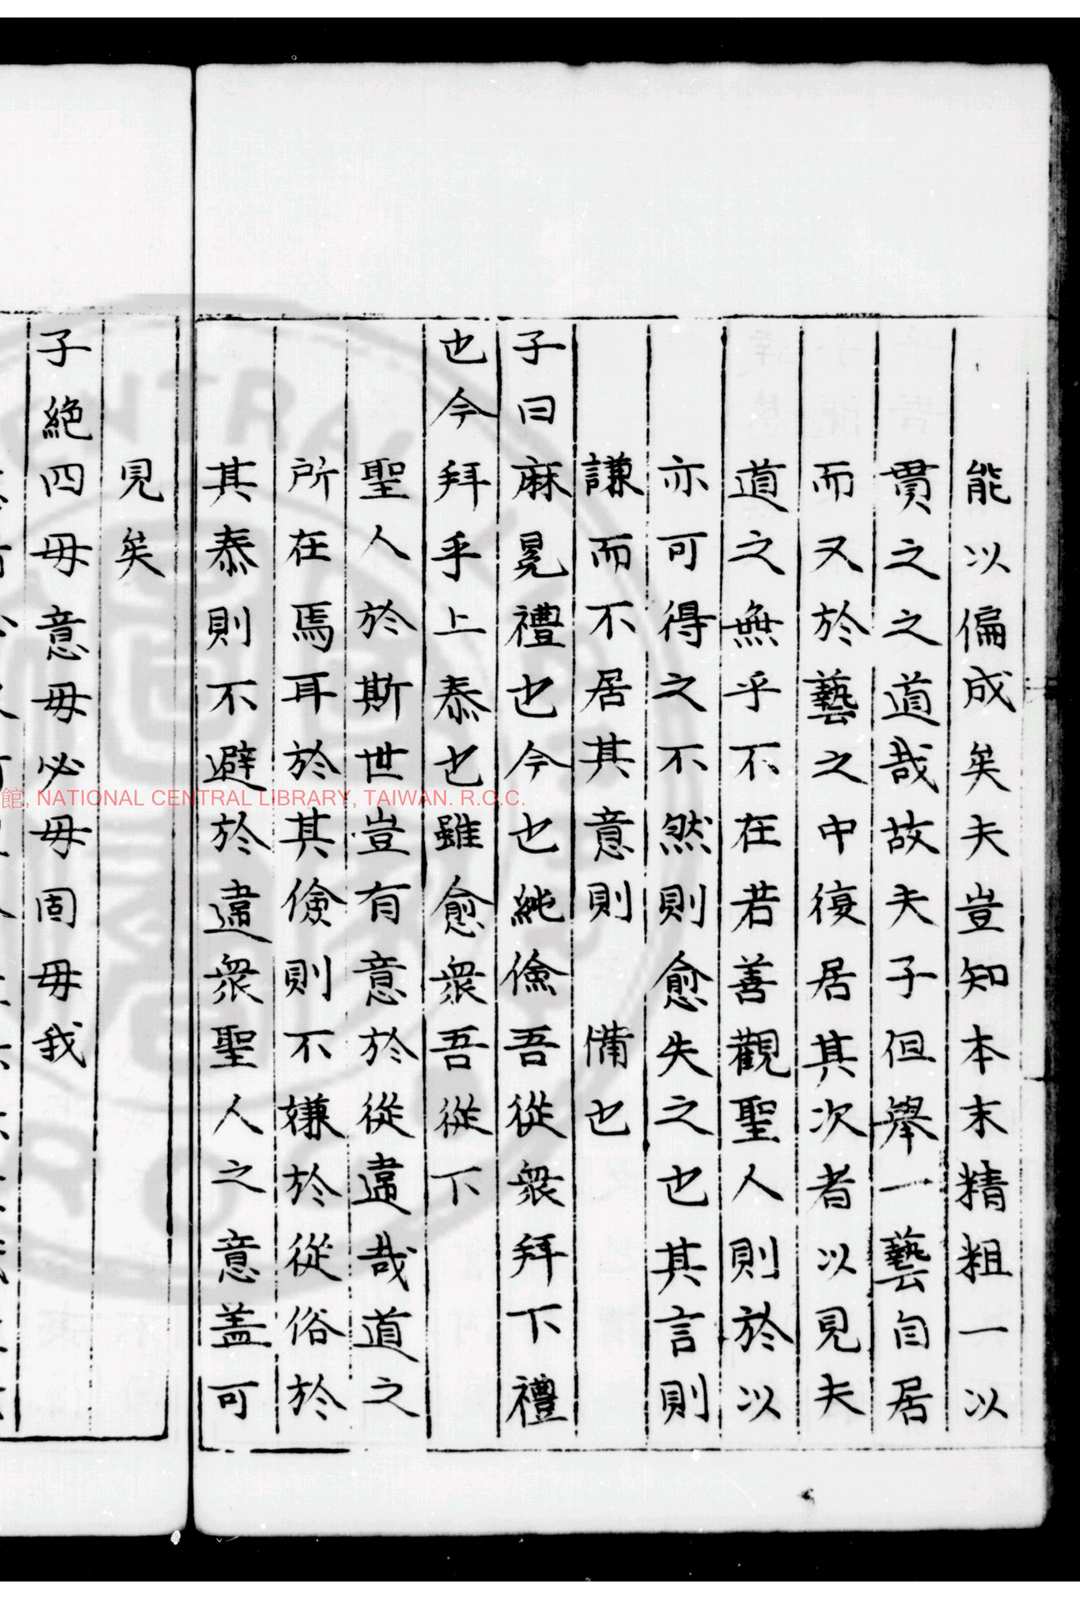 能以偏成矣夫豈知本末精粗一以
貫之之道哉故夫子但舉一藝自居
而又於藝之中復居其次者以見夫
道之無乎不在若善觀聖人則於以
亦可得之不然則愈失之也其言則
謙而不居其意則 備也
子曰麻冕禮也今也純儉吾從衆拜下禮
也今拜乎上泰也雖愈衆吾從下
聖人於斯世豈有意於從違哉道之
所在焉耳於其儉則不嫌於從俗於
其泰則不避於違衆聖人之意盖可
見矣
子絶四毋意毋必毋固毋我
館, NATIONAL CENTRAL LIBRARY, TAIWAN. R.O.C.